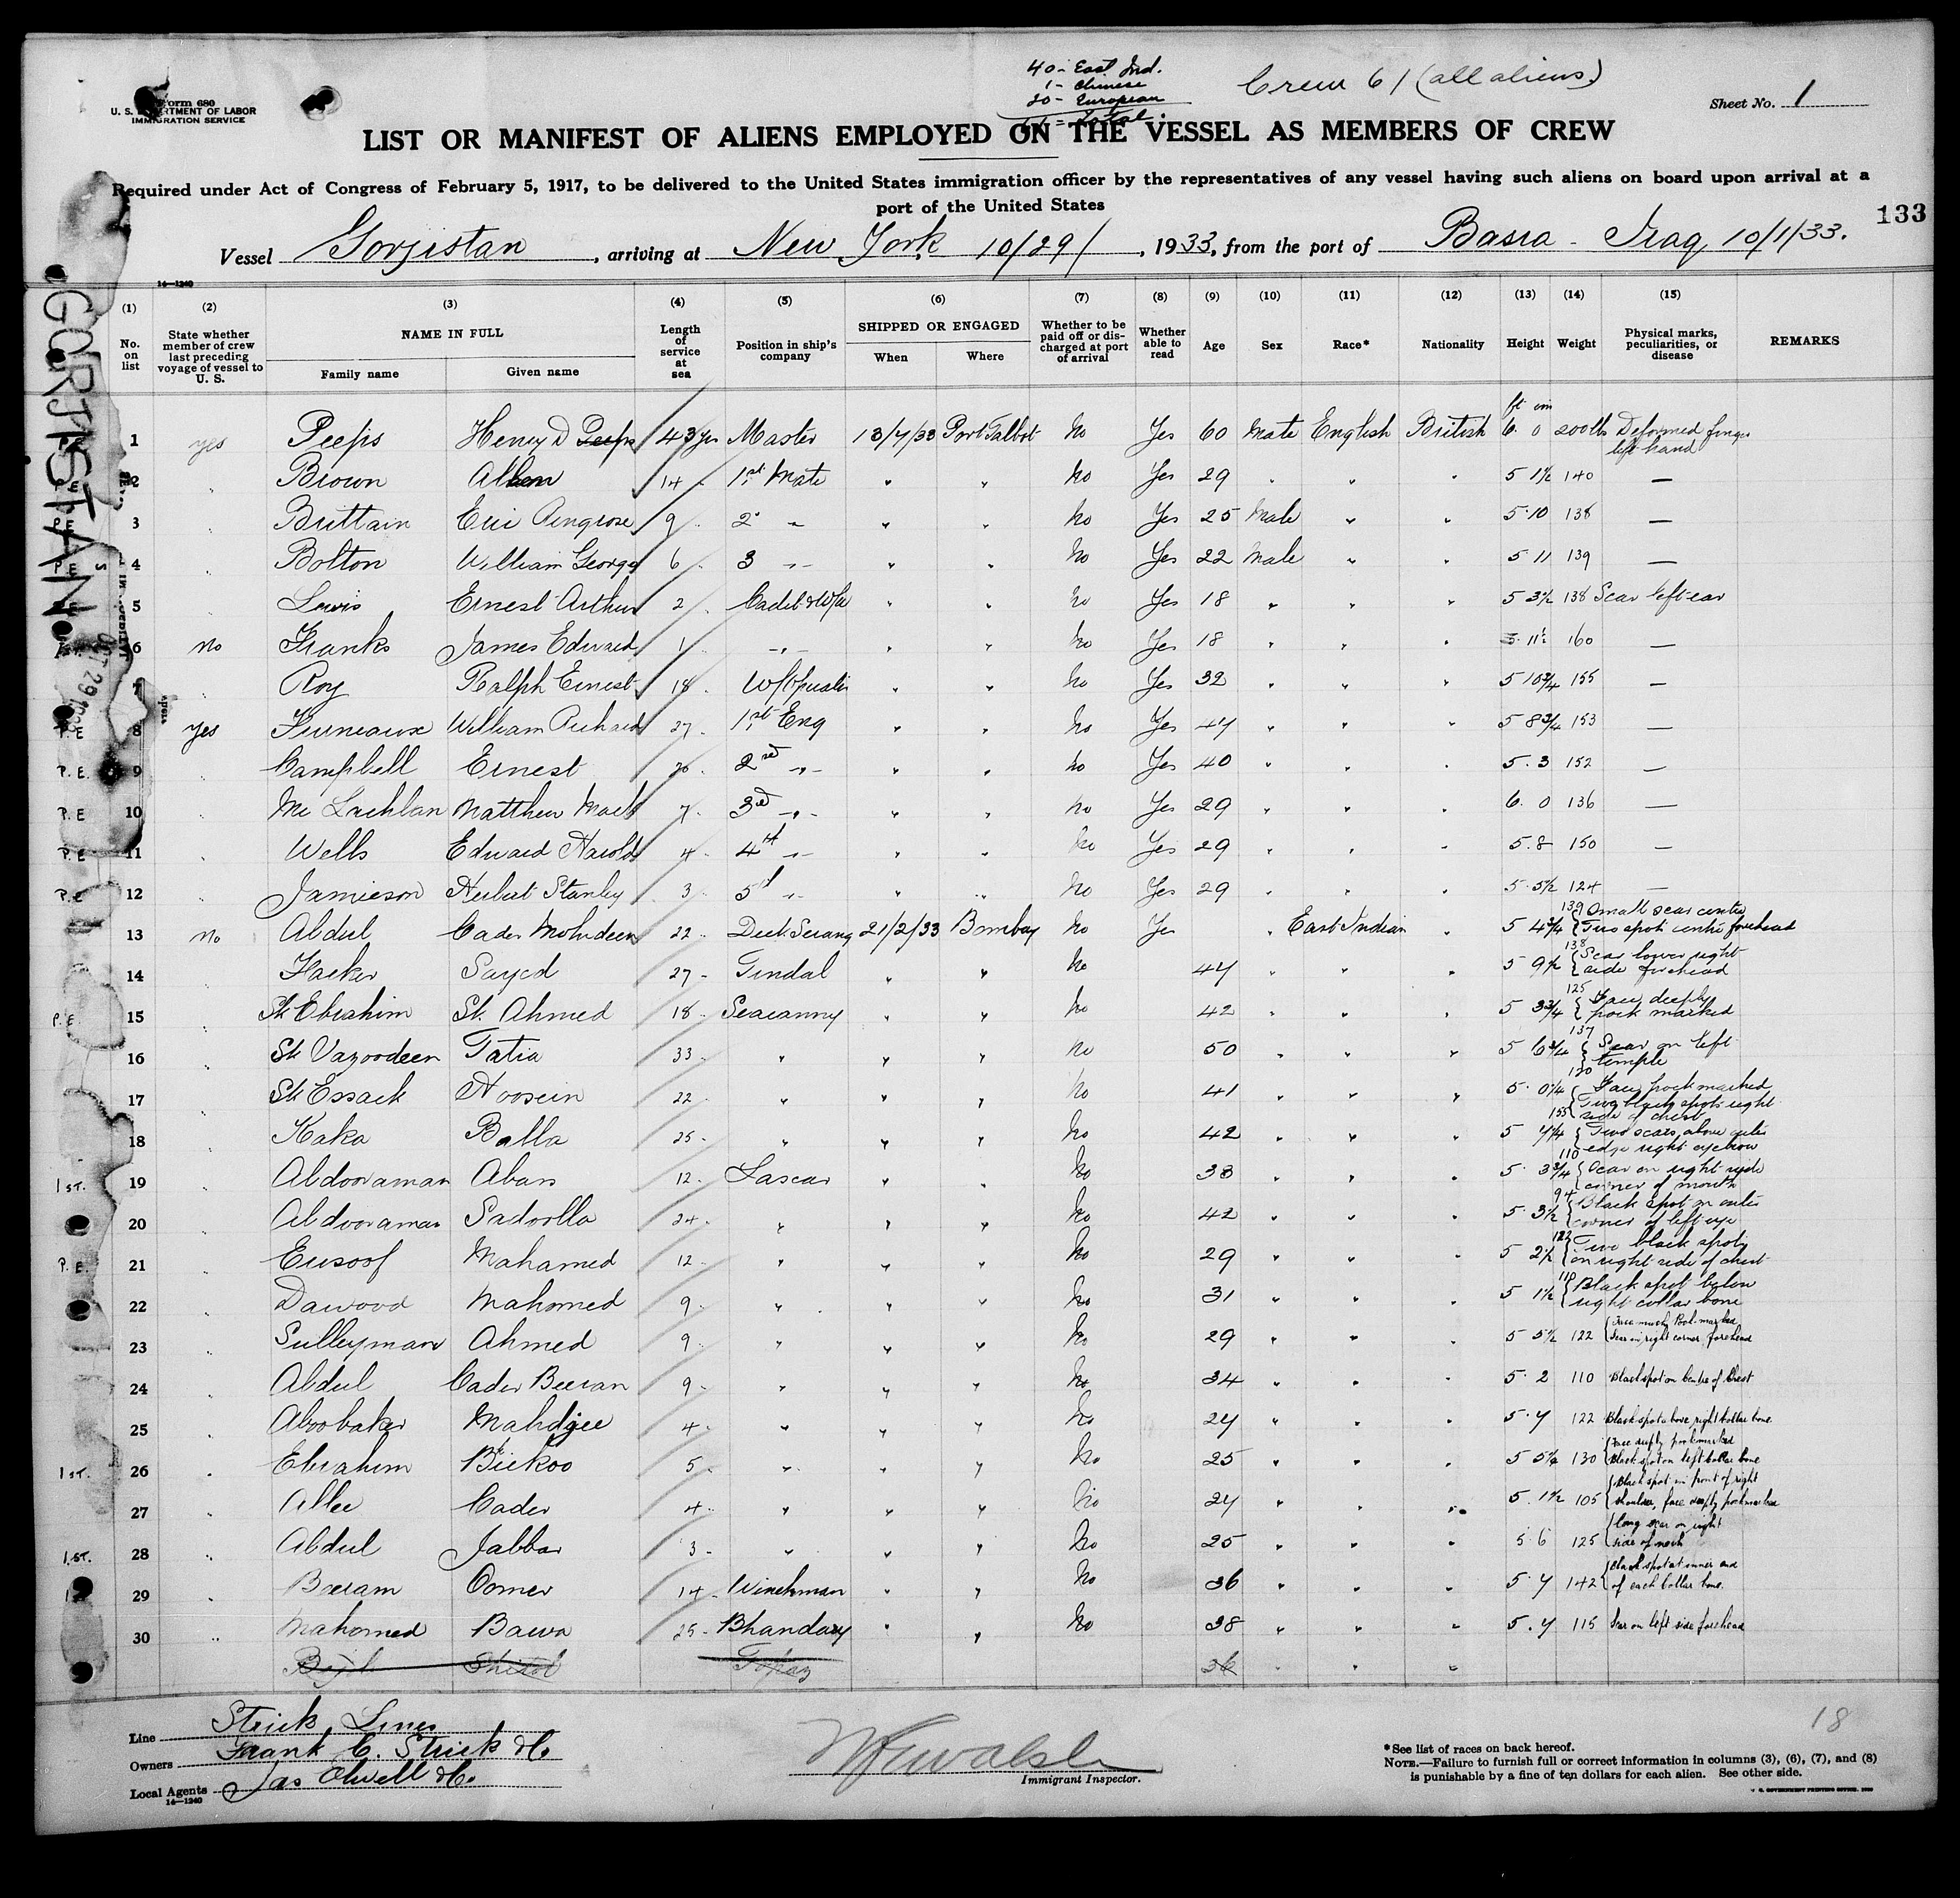 40 - East Ind.
1 - Chinese
20 - European
61 = Total.
Crew 61 (all aliens)
Form 680
U. S. DEPARTMENT OF LABOR
IMMIGRATION SERVICE
Sheet No. 1
LIST OR MANIFEST OF ALIENS EMPLOYED ON THE VESSEL AS MEMBERS OF CREW
Required under Act of Congress of February 5, 1917, to be delivered to the United States immigration officer by the representatives of any vessel having such aliens on board upon arrival at a
port of the United States
133
Vessel Gorjistan, arriving at New York 10/29/, 1933, from the port of Basra - Iraq 10/1/33.
14—1240
GORJISTAN
(1) (2) (3) (4) (5) (6) (7) (8) (9) (10) (11) (12) (13) (14) (15)
No. on list
State whether member of crew last preceding voyage of vessel to U. S.
NAME IN FULL
Family name Given name
Length of service at sea
Position in ship's company
SHIPPED OR ENGAGED
When Where
Whether to be paid off or discharged at port of arrival
Whether able to read
Age Sex Race* Nationality Height Weight
Physical marks, peculiarities, or disease
REMARKS
ft in
1 yes Peeps Henry D Peeps 43 yrs Master 13/7/33 Port Talbot No Yes 60 Male English British 6. 0 200 lbs Deformed finger left hand
P.E 2 " Brown 14 " 1st Mate " " No Yes 29 " " " 5 1½ 140 —
P.E 3 " Brittain Eric Pengrose 9 " 2 " " " No Yes 25 Male " " 5 10 138 —
P.E 4 " Bolton William George 6 " 3 " " " No Yes 22 Male " " 5 11 139 —
5 " Lewis Ernest Arthur 2 " Cadet & W/O " " No Yes 18 " " " 5 3½ 138 Scar left ear
6 No Franks James Edward 1 " " " " No Yes 18 " " " 5 11½ 160 —
7 " Roy Ralph Ernest 18 " W/Operator " " No Yes 32 " " " 5 10¾ 155 —
P.E 8 Yes Furneaux William Richard 27 " 1st Eng " " No Yes 44 " " " 5 8¾ 153 —
P.E. 9 " Campbell Ernest 20 " 2nd " " " No Yes 40 " " " 5. 3 152 —
P.E 10 " Mc Lachlan Matthew Mack 7 " 3rd " " " No Yes 29 " " " 6. 0 136 —
P.E 11 " Wells Edward Harold 4 " 4th " " " No Yes 29 " " " 5. 8 150 —
P.E 12 " Jamieson Herbert Stanley 3 " 5th " " " No Yes 29 " " " 5. 5½ 124 —
13 No Abdul Cader Mohideen 22 " Deck Serang 21/2/33 Bombay No Yes " East Indian " 5 4¾ 139 Small scar centre Two spots centre forehead
14 " Sayed 27 " Tindal " " No 44 " " " 5 9½ 138 Scar lower right side forehead
P.E. 15 " Sk Ebrahim Sk. Ahmed 18 " Seacunny " " No 42 " " " 5 3¾ 125 Face deeply pock marked
16 " Sk Vazoodeen Tatia 33 " " " " No 50 " " " 5 6¾ 137 Scar on left temple
17 " Sk Essack Hoosein 22 " " " " No 41 " " " 5. 0¼ 120 Face pock marked Two black spots right side of chest
18 " Kaka Balla 25 " " " " No 42 " " " 5 4¼ 155 Two scars above outer edge right eyebrow
1st. 19 " Abdooraman Abas 12 " Lascar " " No 33 " " " 5. 3¾ 110 Scar on right side corner of mouth
20 " Abdooraman Sadoolla 24 " " " " No 42 " " " 5. 3½ 94 Black spot on outer corner of left eye
P.E. 21 " Eusoof Mahamed 12 " " " " No 29 " " " 5 2½ 123 Two black spots on right side of chest
22 " Dawood Mahomed 9 " " " " No 31 " " " 5 1½ 110 Black spot below right collar bone
23 " Sulleyman Ahmed 9 " " " " No 29 " " " 5 5½ 122 Face much Pock-marked Scar on right corner forehead
24 " Abdul Cader Beeran 9 " " " " No 34 " " " 5. 2 110 Black spot on Centre of Chest
25 " Aboobaker 4 " " " " No 24 " " " 5. 4 122 Black spot above right Collar bone
1st. 26 " Ebrahim Bickoo 5 " " " " No 25 " " " 5 5¼ 130 Face deeply pockmarked Black spot on left Collar bone
27 " Allee Cader 4 " " " " No 24 " " " 5. 1½ 105 Black spot in front of right shoulder, face deeply pockmarked
1st. 28 " Abdul Jabbar 3 " " " " No 25 " " " 5 6 125 long scar on right side of neck
29 " Beeram Oomer 14 " Winchman " " No 36 " " " 5. 4 142 Black spot at inner end of each Collar bone.
30 " Mahomed Bawa 25 " Bhandary " " No 38 " " " 5. 4 115 Scar on left side forehead
Topaz 36 " " "
Line Strick Lines
Owners Frank C. Strick & Co.
Local Agents Jas Elwell & Co.
14—1240
Immigrant Inspector.
18
*See list of races on back hereof.
NOTE.—Failure to furnish full or correct information in columns (3), (6), (7), and (8)
is punishable by a fine of ten dollars for each alien. See other side.
U. S. GOVERNMENT PRINTING OFFICE